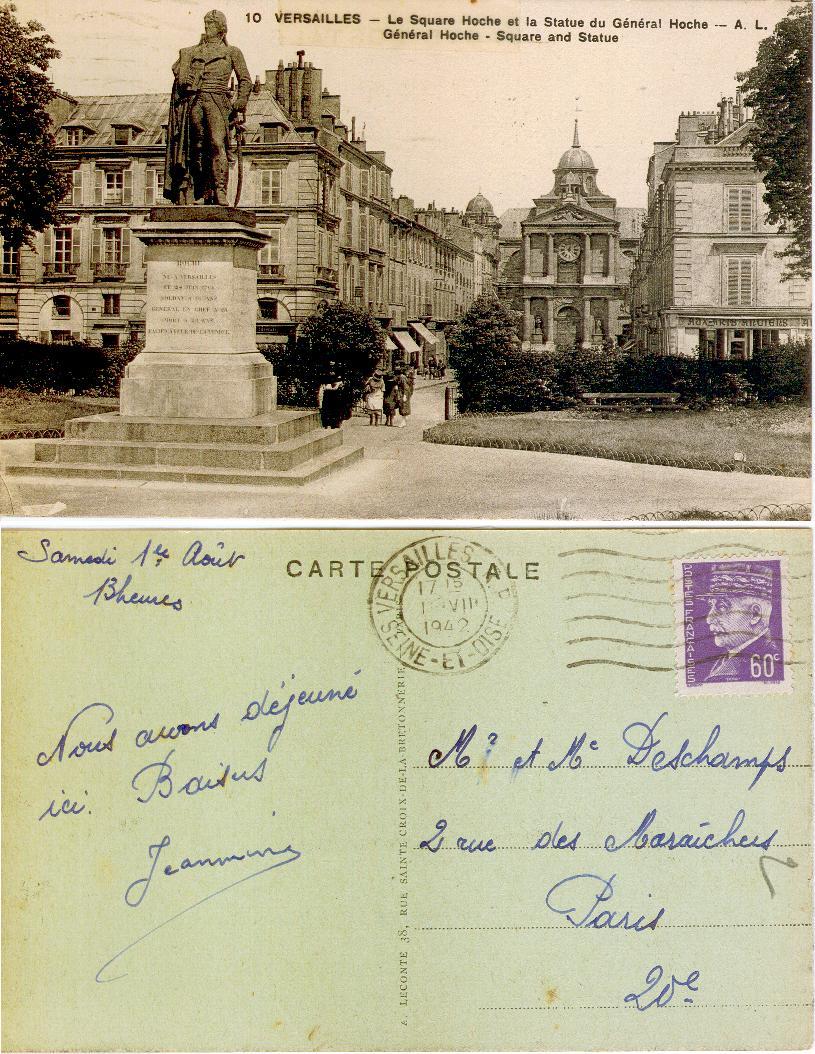 10 VERSAILLES — Le Square Hoche et la Statue du Général Hoche — A. L.
Général Hoche - Square and Statue
HOCHE
NÉ A VERSAILLES
SOLDAT A 16 ANS
GÉNÉRAL EN CHEF A 25
MORT A 29 ANS
PACIFICATEUR DE LA VENDÉE
Samedi 1er Août
13heures
CARTE POSTALE
VERSAILLES R.P.
17 15
1 -VIII
1942
SEINE-ET-OISE
POSTES FRANÇAISES
60c
Nous avons déjeuné
ici. Baisers
Jeannine
A. LECONTE 38, RUE SAINTE-CROIX-DE-LA-BRETONNERIE
Mr et Me Deschamps
2 rue des Maraîchers
Paris
20e